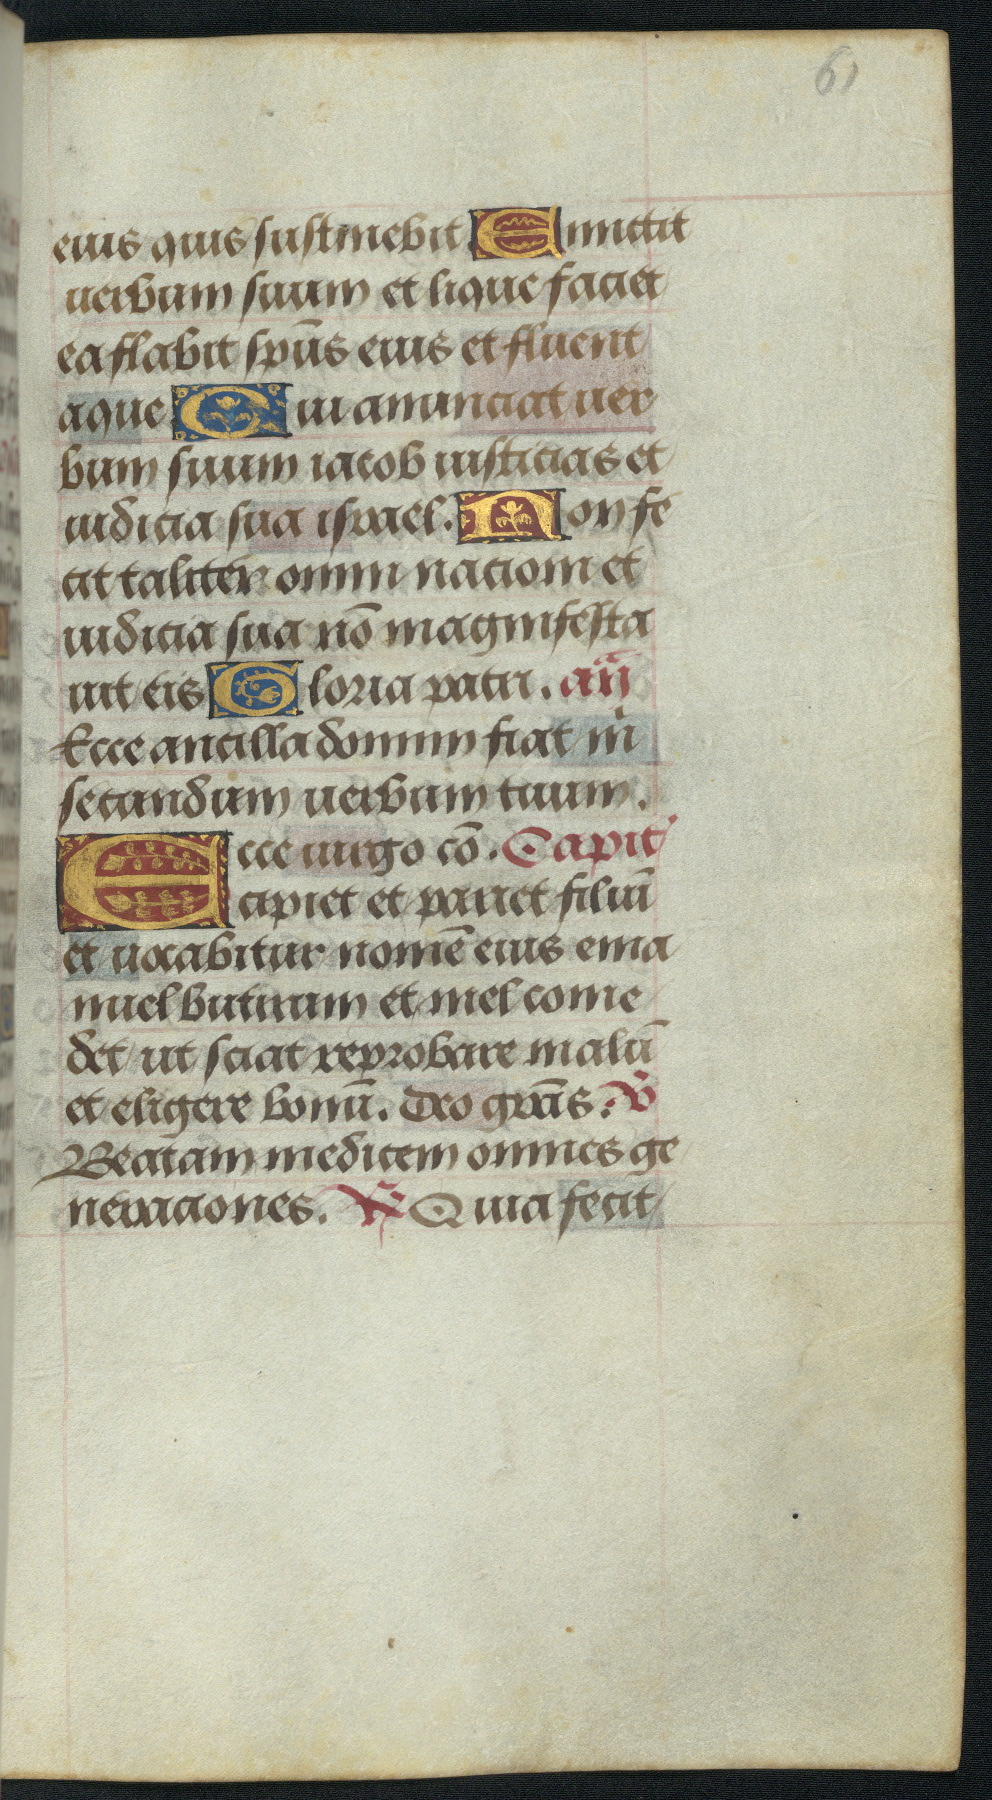 61
eius quis sustinebit. Emittit
verbum suum et liquefaciet
ea flabit spūs eius et fluent
aque Qui anunciat ver
bum suum iacob iusticias et
iudicia sua israel. Non fe
cit taliter omni nacioni et
iudicia sua nō magnifesta
vit eis Gloria patri. añ
Ecce ancilla domini fiat m̄
secundum verbum tuum.
Ecce virgo cō. Capit
cipiet et pariet filiū
et vocabitur nomē eius ema
nuel butirum et mel come
det ut sciat reprobare malū
et eligere bonū. Deo grās. ℣
Beatam me dicem omnes ge
neraciones. ℟ Quia fecit